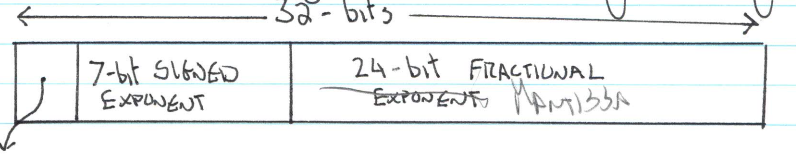 32-bits
7-bit SIGNED
EXPONENT
24-bit FRACTIONAL
EXPONENT MANTISSA